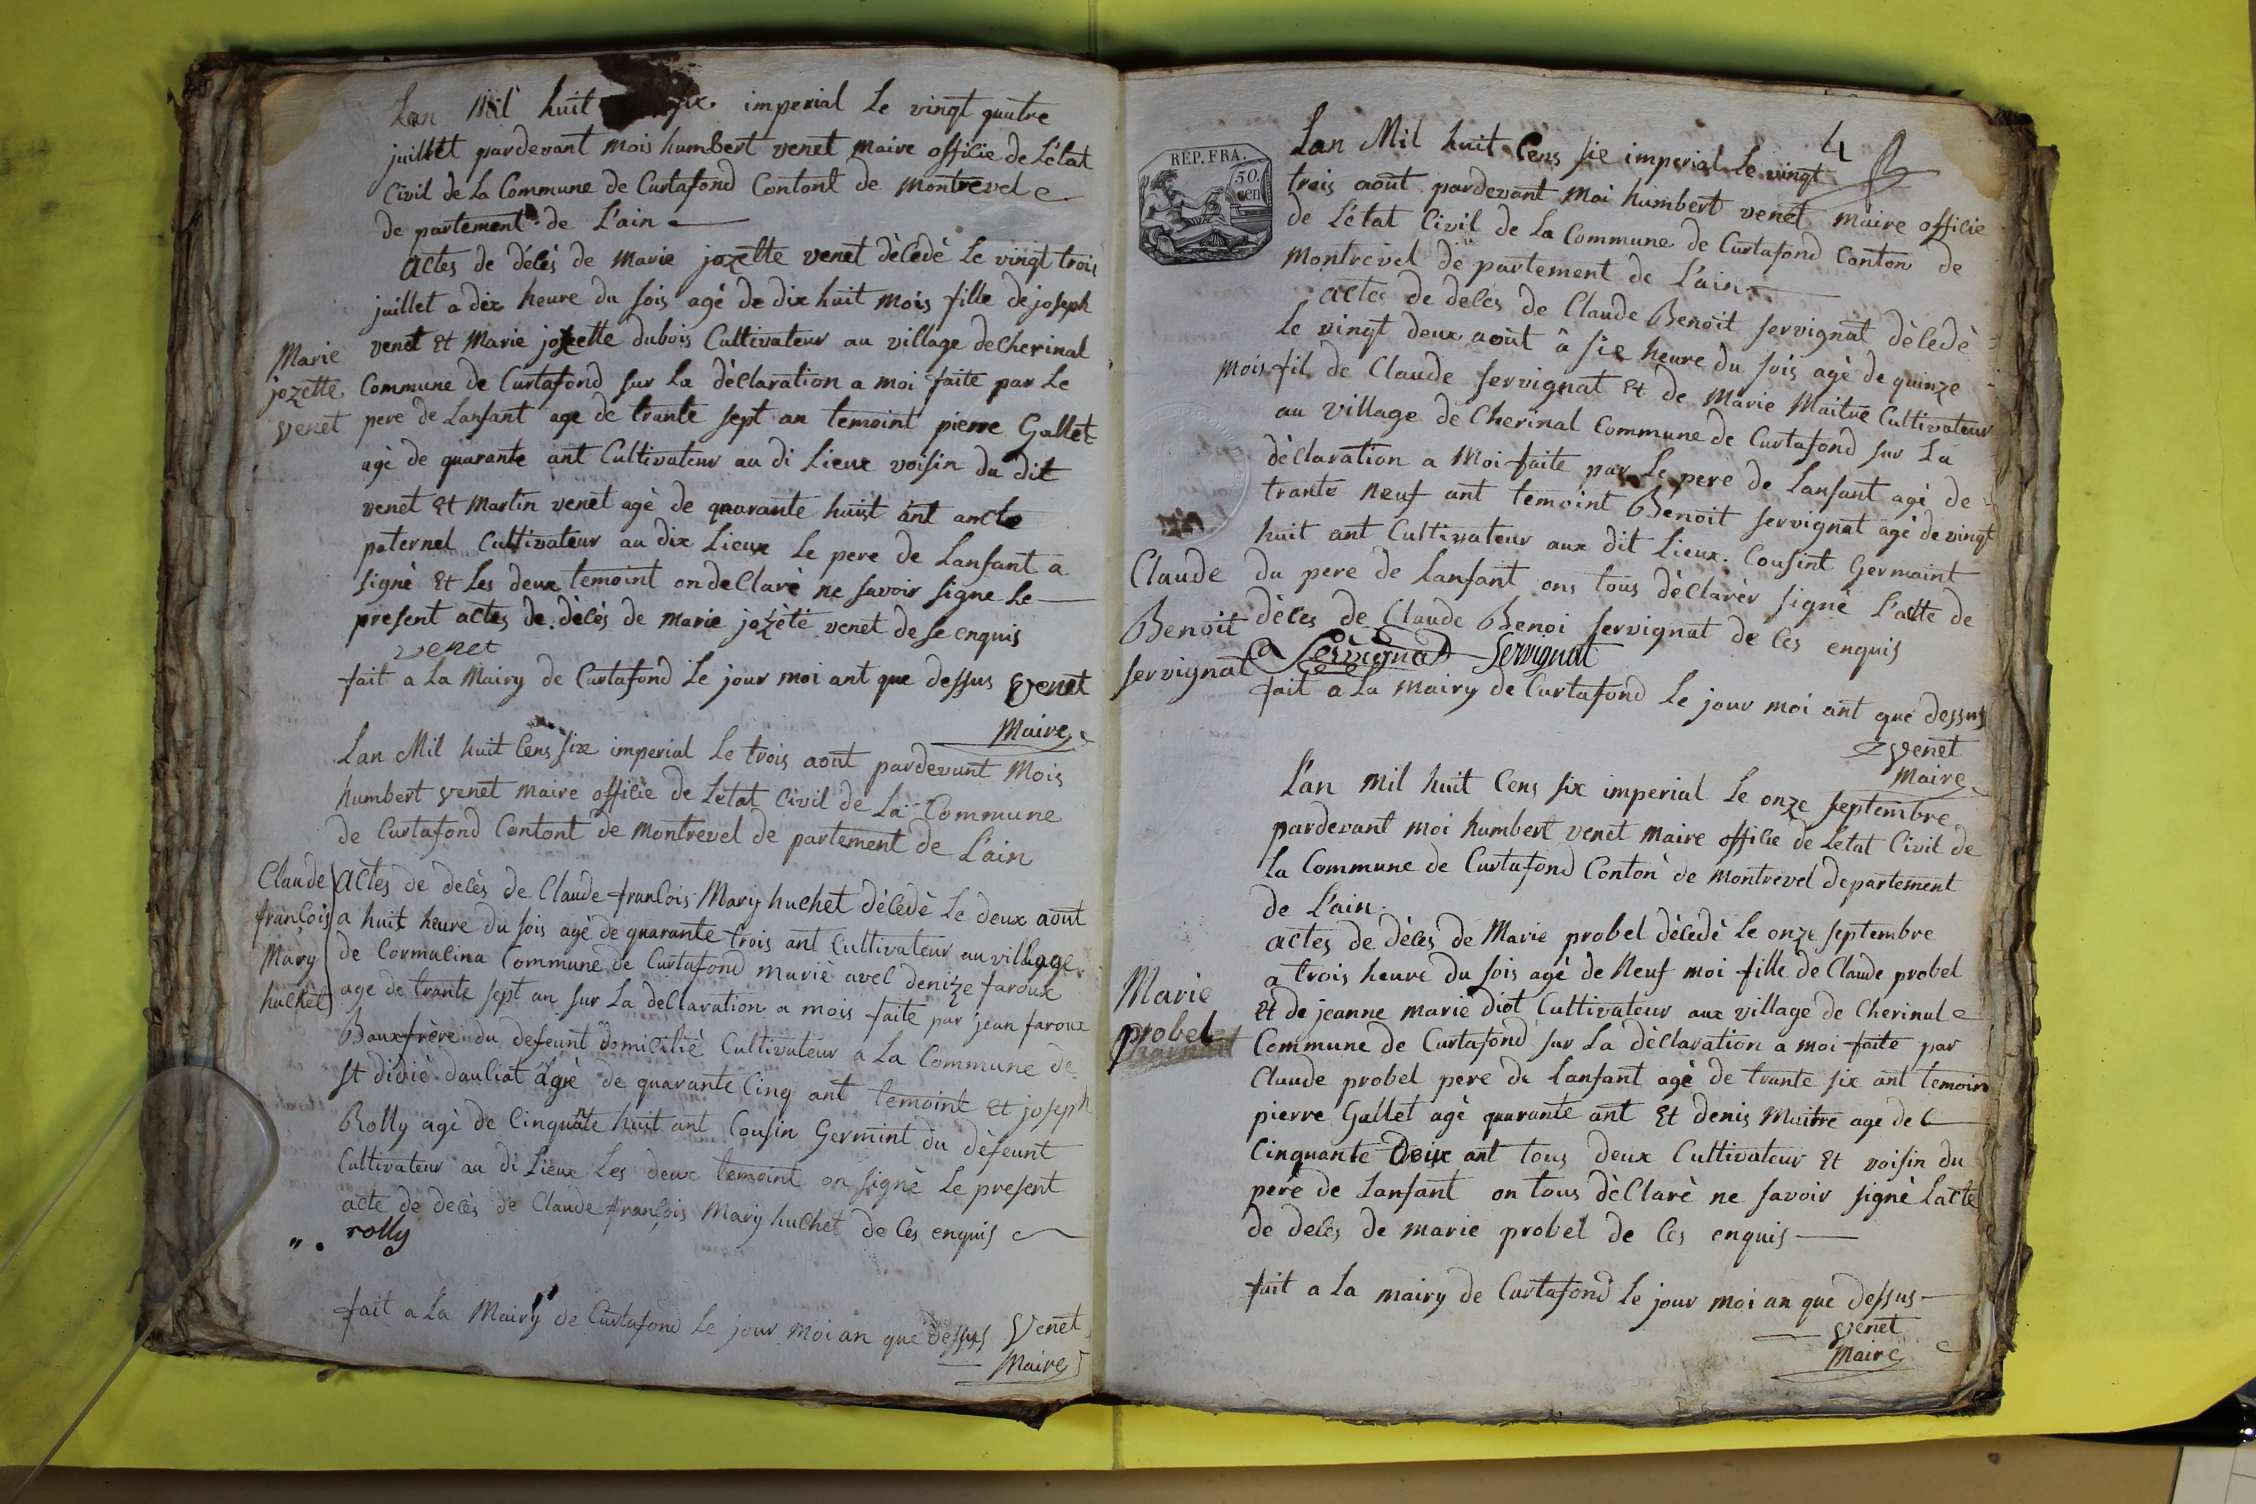 Lan Mil huit six imperial Le vingt quatre
juillet pardevant mois humbert venet maire officie de Létat
Civil de La Commune de Curtafond Contont de montrevel
de partement de L'ain
actes de délès de marie jozette venet dècèdè Le vingt trois
juillet a dix heure du sois agè de dix huit mois fille de joseph
venet Et Marie jozette dubois Cultivateur au village de Cherinal
Commune de Curtafond sur La dèClaration a moi faite par Le
pere de Lanfant age de trante sept an temoint pierre Gallet
agè de quarante ant Cultivateur au di Lieux voisin du dit
venet Et Martin venet agè de quarante huist ant ancle
paternel Cultivateur au dix Lieux Le pere de Lanfant a
signè Et Les deux temoint on deClarè ne savoir signe Le
present actes de dècès de marie jozèté venet de se enquis
venet
fait a La Mairy de Curtafond Le jour moi ant que dessus venet
Maire
Marie
jozette
venet
Lan Mil huit Cens six imperial Le trois aout pardevant Mois
humbert venet maire officiè de Létat Civil de La Commune
de Curtafond Contont de montrevel de partement de L'ain
actes de decès de Claude françois Mary huchet dècèdè Le deux aout
a huit heure du sois agè de quarante trois ant Cultivateur au village
de Cormalina Commune de Curtafond mariè avec denize faroux
age de trante sept an sur La declaration a mois faite par jean faroux
Bauxfrère du defeunt domicilié Cultivateur a La Commune de
st didiè dauliat agè de quarante Cinq ant temoint Et joseph
Rolly agè de Cinquate huit ant Cousin Germint du dèfeunt
Cultivateur au di Lieux Les deux temoint on signè Le present
acte de decès de Claude françois Mary huchet de Ces enquis
rolly
fait a La Mairy de Curtafond Le jour moi an que dessus venet
Maire
Claude
françois
Mary
huchet
4
REP. FRA.
50.
cen
Lan Mil huit Cens six imperial Le vingt
trois aout pardevant Moi humbert venet maire officie
de Létat Civil de La Commune de Curtafond Canton de
Montrevel de partement de L'ain
actes de deces de Claude Benoit servignat dècèdè
Le vingt deux aout à six heure du sois agè de quinze
mois fil de Claude servignat Et de Marie Maitre Cultivateur
au village de Cherinal Commune de Curtafond sur La
dèClaration a Moi faite par Le pere de Lanfant agè de
trante neuf ant temoint Benoit servignat agè de vingt
huit ant Cultivateur aux dit Lieux. Cousint Germaint
du pere de Lanfant ons tous dèClarèr signè L'actte de
dèces de Claude Benoi servignat de Ces enquis
Servignat Servignat
fait a La mairy de Curtafond Le jour moi ant que dessus
venet
Maire
Claude
Benoit
servignat
L'an mil huit Cens six imperial Le onze septembre
pardevant moi humbert venet maire officie de Letat Civil de
La Commune de Curtafond Conton de montrevel departement
de L'ain.
actes de dèces de Marie probel dècedè Le onze septembre
a trois heure du sois agè de Neuf moi fille de Claude probel
Et de jeanne marie diot Cultivateur aux village de Cherinal
Commune de Curtafond sur La dèclaration a moi faite par
Claude probel pere de Lanfant agè de trante six ant temoin
pierre Gallet agè quarante ant Et denis Maitre age de
Cinquante Deux ant tous deux Cultivateur Et voisin du
père de Lanfant on tous dèClarè ne savoir signè Lacte
de deces de marie probel de Ces enquis
fait a La mairy de Curtafond Le jour moi an que dessus
venet
Maire
Marie
probel